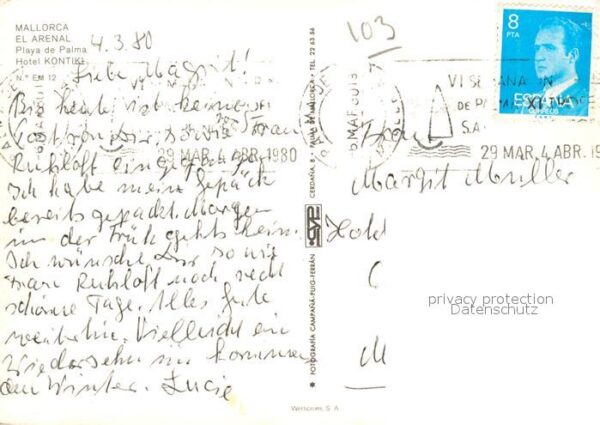 MALLORCA
EL ARENAL
Playa de Palma
Hotel KONTIKI
N.º EM 12
4.3.80
Liebe Margit!
Bis heute ist keine
Post von Dir sowie Frau
Ruhloff eingegangen.
Ich habe mein Gepäck
bereits gepackt. Morgen
in der Früh gehts heim.
Ich wünsche Dir so wie
Frau Ruhloff noch recht
schöne Tage. Alles Gute
weiterhin. Vielleicht ein
Wiedersehn im kommen
den Winter. Lucie
29 MAR. 4 ABR. 1980
FOTOGRAFIA CAMPAÑÁ-PUIG-FERRÁN
CYP
CERDAÑA, 8 - PALMA DE MALLORCA - TEL. 22 63 66
103
8
PTA
ESPAÑA
CORREOS
VI SEMANA IN
DE
29 MAR. 4 ABR. 19
Frau
Margit Müller
Hotel
M
privacy protection
Datenschutz